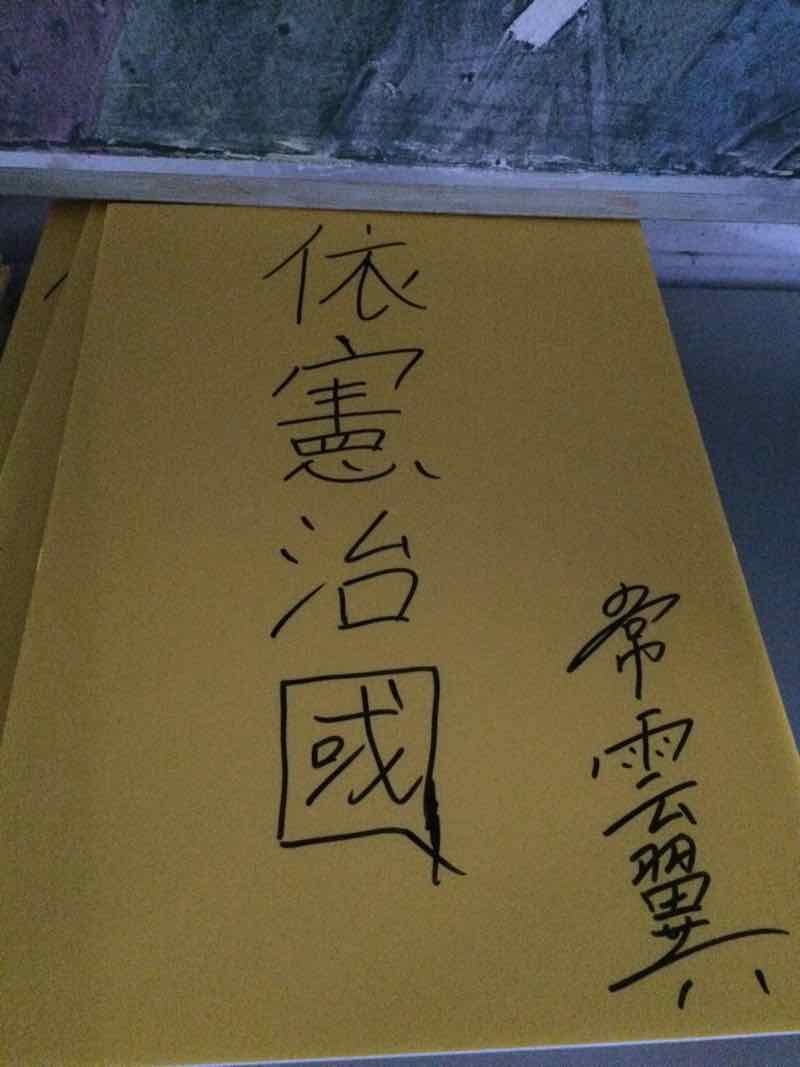 依憲治國
常雲翼